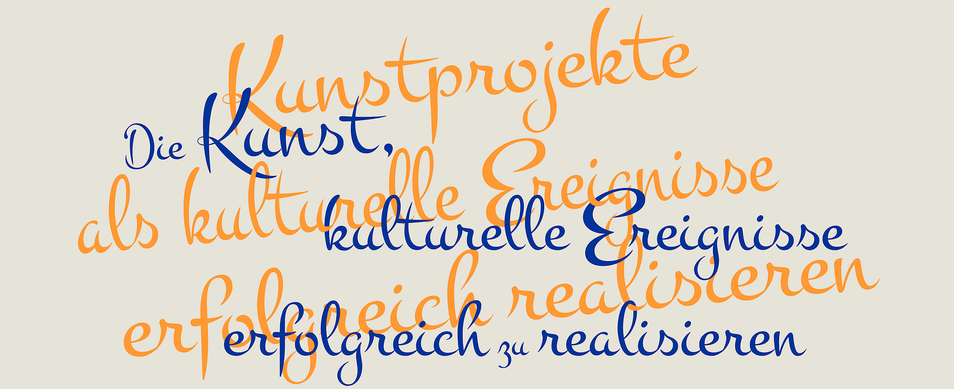 Kunstprojekte
Die Kunst,
als kulturelle Ereignisse
kulturelle Ereignisse
erfolgreich realisieren
erfolgreich zu realisieren